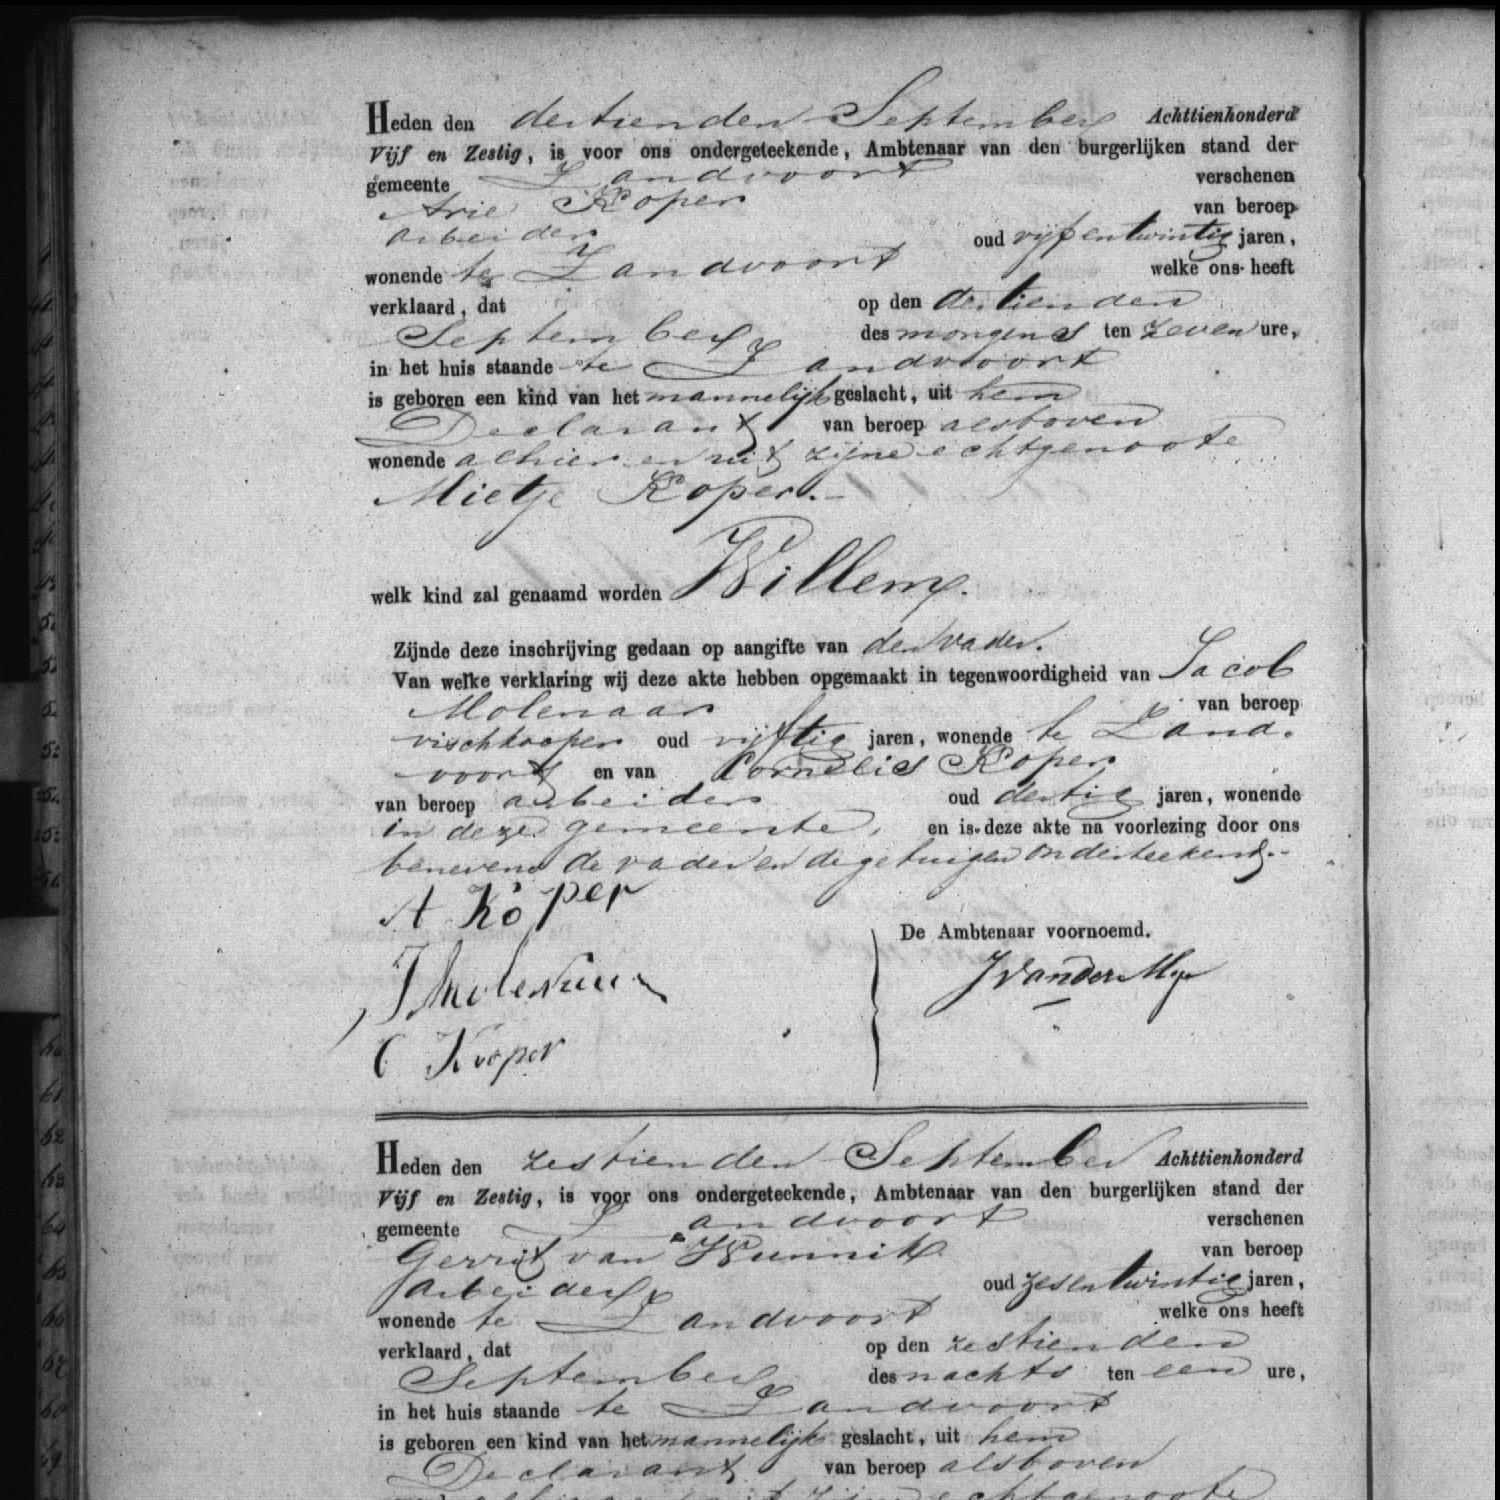 Heden den dertienden September Achttienhonderd
Vijf en Zestig, is voor ons ondergeteekende, Ambtenaar van den burgerlijken stand der
gemeente Zandvoort verschenen
Arie Koper van beroep
arbeider oud vijfentwintig jaren,
wonende te Zandvoort welke ons heeft
verklaard, dat op den dertienden
September des morgens ten zeven ure,
in het huis staande te Zandvoort
is geboren een kind van het mannelijk geslacht, uit hem
Declarant van beroep alsboven
wonende alhier en uit zijne echtgenoote
Mietje Koper.
welk kind zal genaamd worden Willem.
Zijnde deze inschrijving gedaan op aangifte van den vader.
Van welke verklaring wij deze akte hebben opgemaakt in tegenwoordigheid van Jacob
Molenaar van beroep
vischkooper oud vijftig jaren, wonende te Zand-
voort en van Cornelis Koper
van beroep arbeider oud dertig jaren, wonende
in deze gemeente, en is deze akte na voorlezing door ons
benevens de vader en de getuigen onderteekend.
A Koper
De Ambtenaar voornoemd.
J Molenaar
C Koper
Heden den zestienden September Achttienhonderd
Vijf en Zestig, is voor ons ondergeteekende, Ambtenaar van den burgerlijken stand der
gemeente Zandvoort verschenen
Gerrit van Wunnik van beroep
arbeider oud zesentwintig jaren,
wonende te Zandvoort welke ons heeft
verklaard, dat op den zestienden
September des nachts ten een ure,
in het huis staande te Zandvoort
is geboren een kind van het mannelijk geslacht, uit hem
Declarant van beroep alsboven